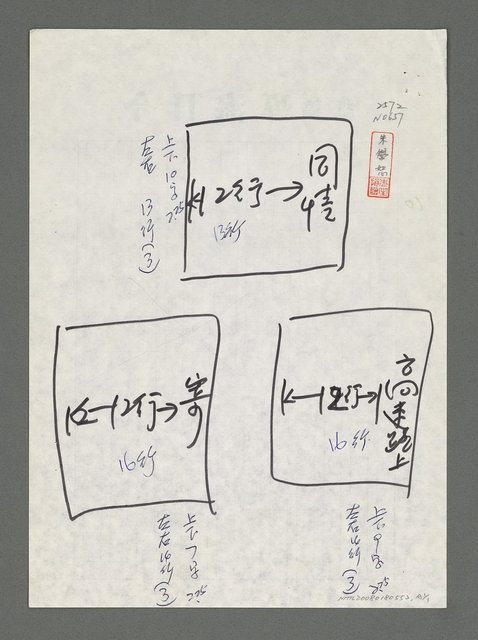 2572
N0657
朱學恕
同情
←12行→
13行
上下10字
左右13行(3)
寄
←12行→
16行
上下7字
左右16行(3)
方向來路上
←12行→
16行
上下9字
左右16行(3)
NMTL20080180552